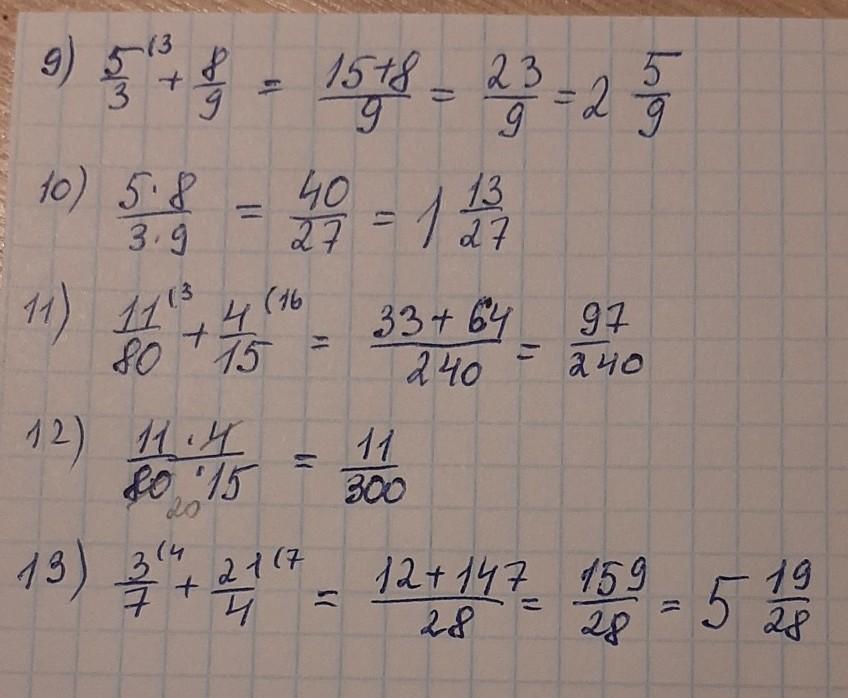 9) 5/3 (3 + 8/9 = 15+8/9 = 23/9 = 2 5/9
10) 5·8/3·9 = 40/27 = 1 13/27
11) 11/80 (3 + 4/15 (16 = 33+64/240 = 97/240
12) 11·4/80·15 = 11/300
20
13) 3/7 (4 + 21/4 (7 = 12+147/28 = 159/28 = 5 19/28